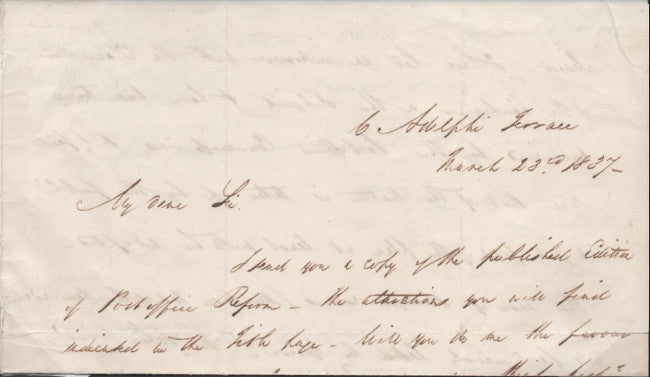 6 Adelphi Terrace
March 23.d 1837-
My dear Sir.
I send you a copy of the published Edition
of Post office Reform - the alterations you will find
indicated in the Title page - Will you do me the favour